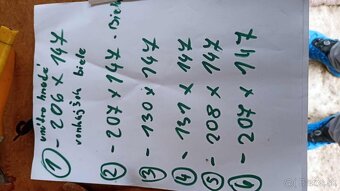 vnútro hnedé
① - 206 x 147
vonkajšok biele
② - 207 x 147 - Biele
③ - 130 x 147
④ - 131 x 147
⑤ - 208 x 147
⑥ - 207 x 147